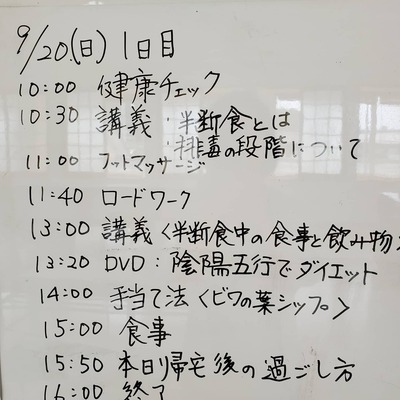 9/20(日) 1日目
10:00 健康チェック
10:30 講義・半断食とは
・排毒の段階について
11:00 フットマッサージ
11:40 ロードワーク
13:00 講義〈半断食中の食事と飲み物〉
13:20 DVD:陰陽五行でダイエット
14:00 手当て法〈ビワの葉シップ〉
15:00 食事
15:50 本日帰宅後の過ごし方
16:00 終了